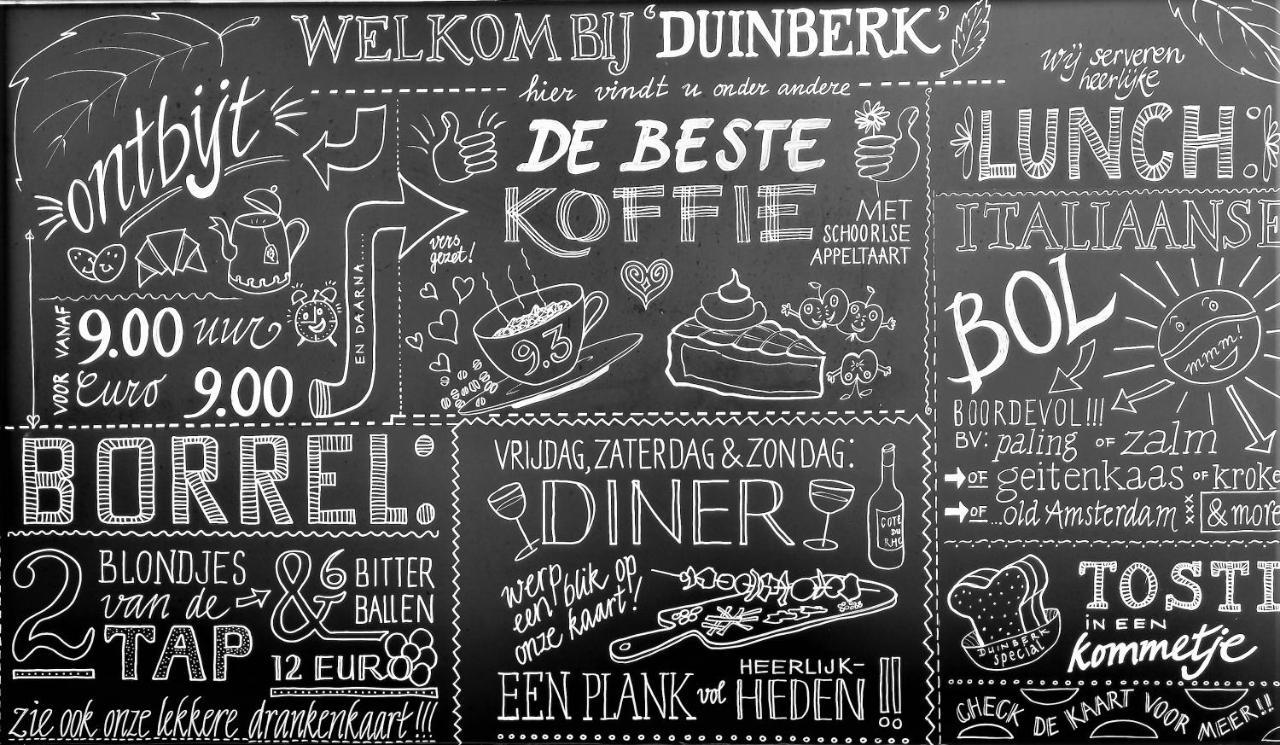 WELKOM BIJ 'DUINBERK'
hier vindt u onder andere
ontbijt
VOOR VANAF
9.00 uur
Euro 9.00
EN DARNA......
DE BESTE
KOFFIE
MET
SCHOORLSE
APPELTAART
vers
gezet!
9.3
wij serveren
heerlijke
LUNCH:
ITALIAANSE
BOL
mmm!
BOORDEVOL!!!
BV: paling OF zalm
OF geitenkaas OF kroke
OF ...old Amsterdam xxx & more
TOSTI
IN EEN
kommetje
DUINBERK
special
CHECK DE KAART VOOR MEER!!
BORREL:
2 BLONDJES
van de
TAP
& 6 BITTER
BALLEN
12 EURO
zie ook onze lekkere drankenkaart!!!
VRIJDAG, ZATERDAG & ZONDAG:
DINER
COTE
DU
RHC
werp blik op
een
onze kaart!!
EEN PLANK vol HEERLIJK-
HEDEN!!